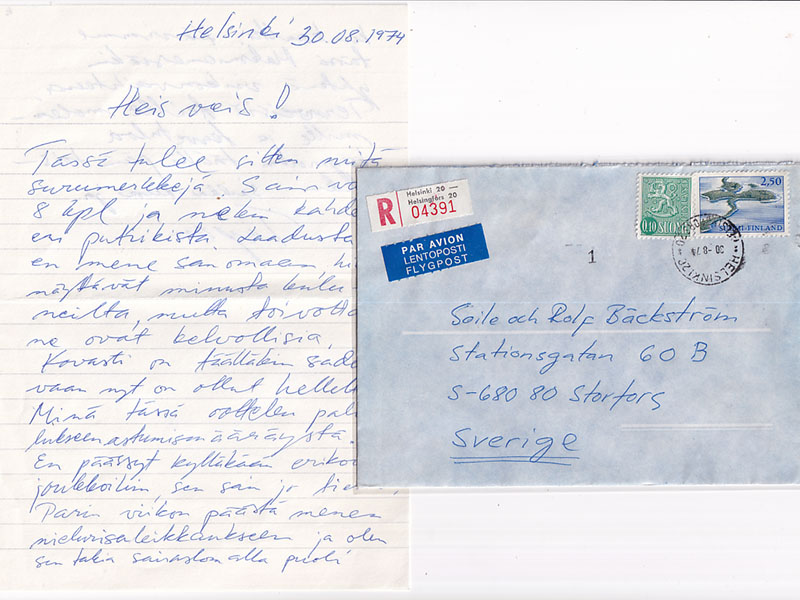 Helsinki 30.08.1974
Heis veis!
Tässä tulee sitten niitä
surumerkkejä. Sain
8 kpl ja
eri putiikista. Laadusta
en mene sanomaan,
näyttävät minusta
neilta, mutta toivotta
ne ovat kelvollisia.
Kovasti on täälläkin
vaan nyt on ollut
Minä tässä oottelen pal
lukseenastumismääräystä.
En päässyt kylläkään eriko
joukkoihin, sen sain jo
Parin viikon päästä menen
nielurisaleikkaukseen ja olen
sen takia sairaslomalla puoli
R
Helsinki 20 —
Helsingfors 20
04391
PAR AVION
LENTOPOSTI
FLYGPOST
1
0,10 SUOMI
2,50
SUOMI-FINLAND
HELSINKI
Soile och Rolf Bäckström
Stationsgatan 60 B
S-680 80 Storfors
Sverige